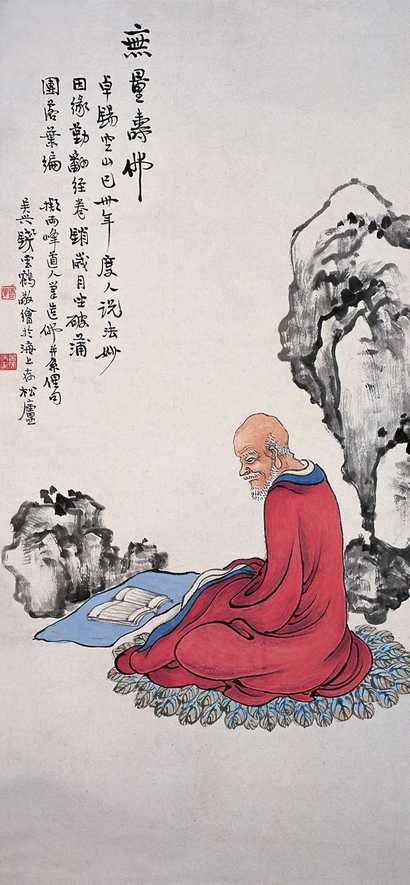 無量壽佛
卓錫空山已卅年度人说法妙
因緣勤翻經卷銷歲月坐破蒲
團落葉編
擬兩峰道人筆造佛并系俚句
吳興錢雲鶴敬繪於海上存松廬